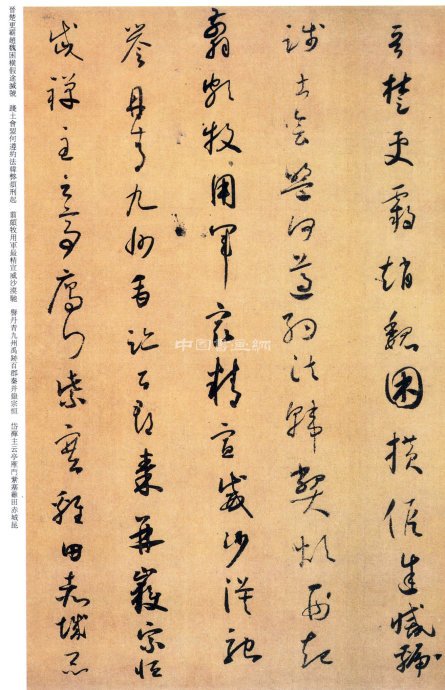 晉楚更霸趙魏困橫假途滅虢
踐土會盟何遵約法韓弊煩刑起
翦頗牧用軍最精宣威沙漠馳
譽丹青九州禹跡百郡秦并嶽宗恒
岱禪主云亭雁門紫塞雞田赤城昆
晉楚更霸趙魏困橫假途滅虢　踐土會盟何遵約法韓弊煩刑起　翦頗牧用軍最精宣威沙漠馳　譽丹青九州禹跡百郡秦并嶽宗恒　岱禪主云亭雁門紫塞雞田赤城昆